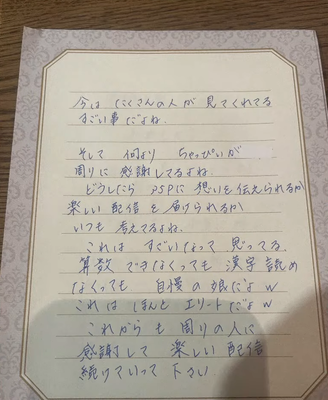 今は たくさんの人が 見てくれてる
すごい事だよね
そして 何より ちゃっぴいが
周りに 感謝してるよね
どうしたら PSPに 想いを伝えられるか
楽しい配信を届けられるか
いつも 考えてるよね。
これは すごいなって 思ってる
算数 できなくっても 漢字 読め
なくっても 自慢の娘だよw
これは ほんと エリートだよw
これからも 周りの人に
感謝して 楽しい配信
続けていって 下さい